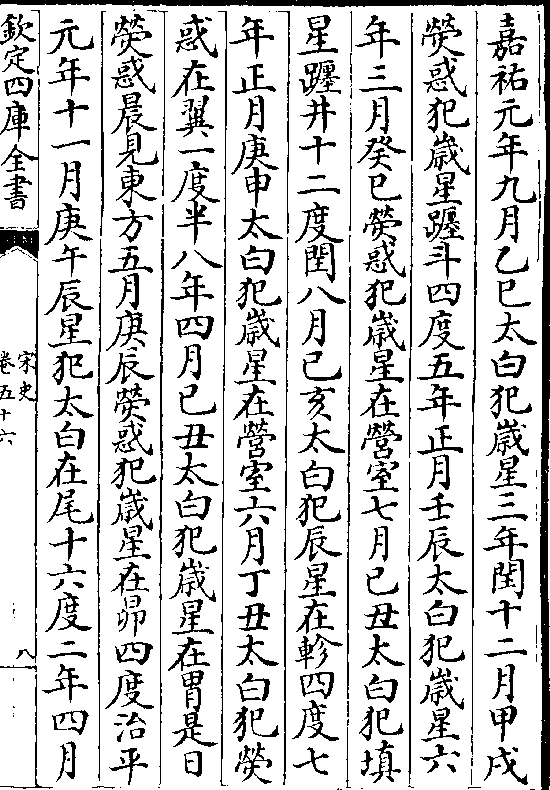 嘉祐元年九月乙巳太白犯嵗星三年閏十二月甲戌
熒惑犯嵗星躔斗四度五年正月壬辰太白犯嵗星六
年三月癸巳熒惑犯嵗星在營室七月己丑太白犯填
星躔井十二度閏八月己亥太白犯辰星在軫四度七
年正月庚申太白犯嵗星在營室六月丁丑太白犯熒
惑在翼一度半八年四月己丑太白犯嵗星在胃是日
熒惑晨見東方五月庚辰熒惑犯嵗星在昴四度治平
元年十一月庚午辰星犯太白在尾十六度二年四月
欽定四庫全書
宋史
卷五十六
八